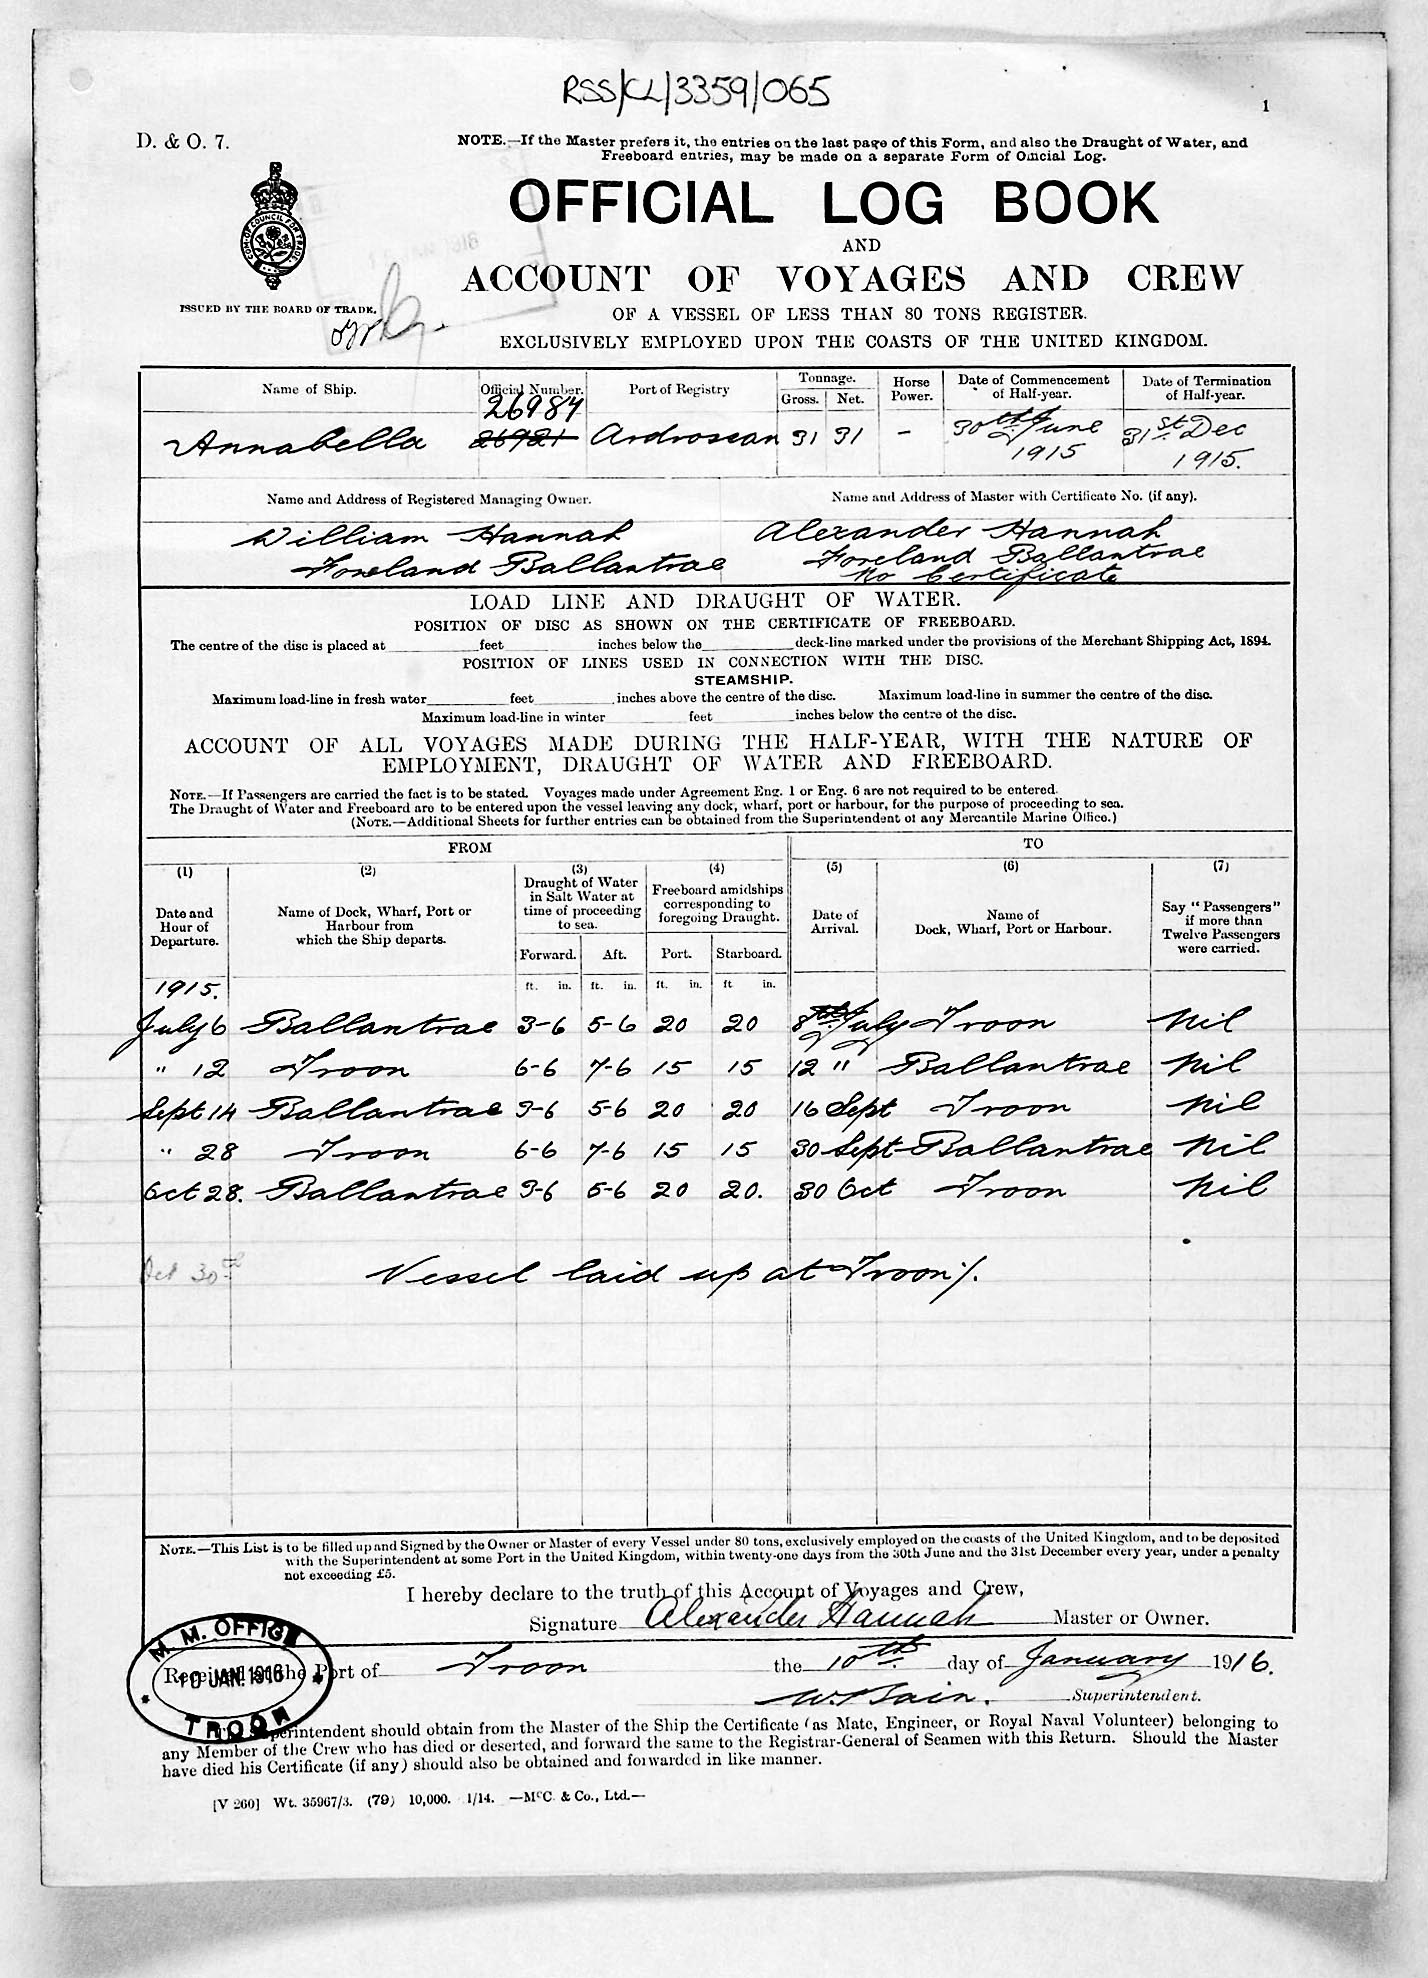 RSS/CL/3359/065
1
D. & O. 7.
NOTE.—If the Master prefers it, the entries on the last page of this Form, and also the Draught of Water, and
Freeboard entries, may be made on a separate Form of Official Log.
OFFICIAL LOG BOOK
AND
ACCOUNT OF VOYAGES AND CREW
OF A VESSEL OF LESS THAN 80 TONS REGISTER.
EXCLUSIVELY EMPLOYED UPON THE COASTS OF THE UNITED KINGDOM.
ISSUED BY THE BOARD OF TRADE.
Name of Ship. Official Number. Port of Registry Tonnage. Gross. Net. Horse Power. Date of Commencement of Half-year. Date of Termination of Half-year.
26984
Annabella 26921 Ardrossan 31 31 – 30th June 1915 31st Dec 1915.
Name and Address of Registered Managing Owner. Name and Address of Master with Certificate No. (if any).
William Hannah Alexander Hannah
Foreland Ballantrae Foreland Ballantrae
No Certificate
LOAD LINE AND DRAUGHT OF WATER.
POSITION OF DISC AS SHOWN ON THE CERTIFICATE OF FREEBOARD.
The centre of the disc is placed at feet inches below the deck-line marked under the provisions of the Merchant Shipping Act, 1894.
POSITION OF LINES USED IN CONNECTION WITH THE DISC.
STEAMSHIP.
Maximum load-line in fresh water feet inches above the centre of the disc. Maximum load-line in summer the centre of the disc.
Maximum load-line in winter feet inches below the centre of the disc.
ACCOUNT OF ALL VOYAGES MADE DURING THE HALF-YEAR, WITH THE NATURE OF
EMPLOYMENT, DRAUGHT OF WATER AND FREEBOARD.
NOTE.—If Passengers are carried the fact is to be stated. Voyages made under Agreement Eng. 1 or Eng. 6 are not required to be entered.
The Draught of Water and Freeboard are to be entered upon the vessel leaving any dock, wharf, port or harbour, for the purpose of proceeding to sea.
(NOTE.—Additional Sheets for further entries can be obtained from the Superintendent of any Mercantile Marine Office.)
FROM TO
(1) (2) (3) (4) (5) (6) (7)
Date and Hour of Departure. Name of Dock, Wharf, Port or Harbour from which the Ship departs. Draught of Water in Salt Water at time of proceeding to sea. Freeboard amidships corresponding to foregoing Draught. Date of Arrival. Name of Dock, Wharf, Port or Harbour. Say "Passengers" if more than Twelve Passengers were carried.
Forward. Aft. Port. Starboard.
1915. ft. in. ft. in. ft. in. ft in.
July 6 Ballantrae 3-6 5-6 20 20 8th July Troon Nil
" 12 Troon 6-6 7-6 15 15 12 " Ballantrae Nil
Sept 14 Ballantrae 3-6 5-6 20 20 16 Sept Troon Nil
" 28 Troon 6-6 7-6 15 15 30 Sept Ballantrae Nil
Oct 28. Ballantrae 3-6 5-6 20 20. 30 Oct Troon Nil
Oct 30th Vessel laid up at Troon /.
NOTE.—This List is to be filled up and Signed by the Owner or Master of every Vessel under 80 tons, exclusively employed on the coasts of the United Kingdom, and to be deposited
with the Superintendent at some Port in the United Kingdom, within twenty-one days from the 30th June and the 31st December every year, under a penalty
not exceeding £5.
I hereby declare to the truth of this Account of Voyages and Crew,
Signature Alexander Hannah Master or Owner.
M. M. OFFICE
10 JAN. 1916
TROON
Received at the Port of Troon the 10th day of January 1916.
W. Bain. Superintendent.
The Superintendent should obtain from the Master of the Ship the Certificate (as Mate, Engineer, or Royal Naval Volunteer) belonging to
any Member of the Crew who has died or deserted, and forward the same to the Registrar-General of Seamen with this Return. Should the Master
have died his Certificate (if any) should also be obtained and forwarded in like manner.
[V 260] Wt. 35967/3. (79) 10,000. 1/14. —McC. & Co., Ltd.—